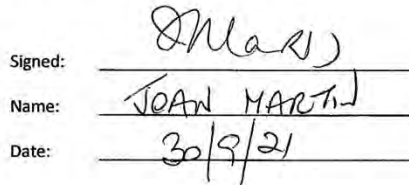 Signed:
Name: JOAN MARTIN
Date: 30/9/21